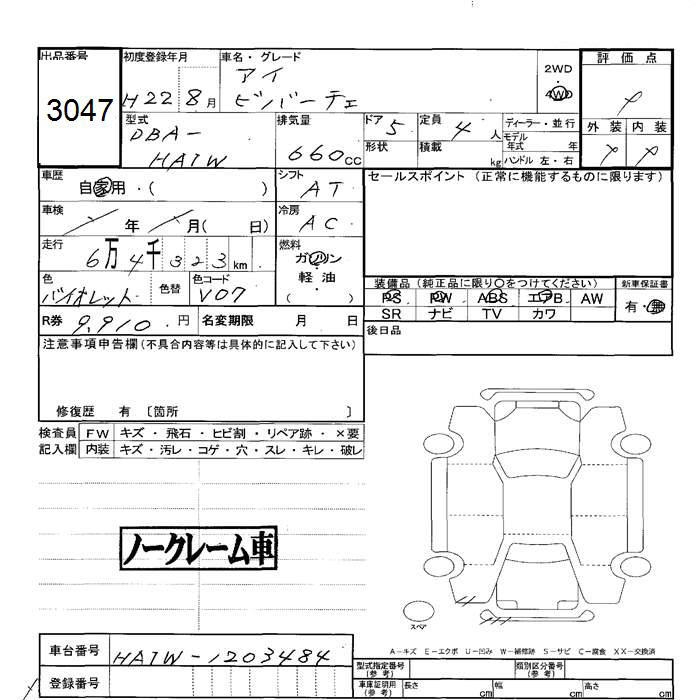 出品番号
3047
初度登録年月
H22 8月
車名・グレード
アイ
ビバーチェ
2WD
4WD
評価点
外装 内装
型式
DBA-
HA1W
排気量
660cc
ドア 5
形状
定員 4人
積載 kg
ディーラー・並行
モデル
年式 年
ハンドル 左・右
車歴
自家用・( )
シフト
AT
セールスポイント (正常に機能するものに限ります)
車検
年 月( 日)
冷房
AC
走行
6万4千323km
燃料
ガソリン
軽油
( )
色
バイオレット
色替
色コード
V07
装備品(純正品に限り〇をつけてください)
PS PW ABS エアB AW
SR ナビ TV カワ
新車保証書
有・無
R券 9,910.円
名変期限 月 日
後日品
注意事項申告欄(不具合内容等は具体的に記入して下さい)
修復歴 有 〔箇所 〕
検査員 FW キズ・飛石・ヒビ割・リペア跡・×要
記入欄 内装 キズ・汚レ・コゲ・穴・スレ・キレ・破レ
ノークレーム車
スペア
A-キズ E-エクボ U-凹み W-補修跡 S-サビ C-腐食 XX-交換済
車台番号 HA1W-1203484
登録番号
型式指定番号
(参考)
類別区分番号
(参考)
車庫証明用
(参考)
長さ cm 幅 cm 高さ cm